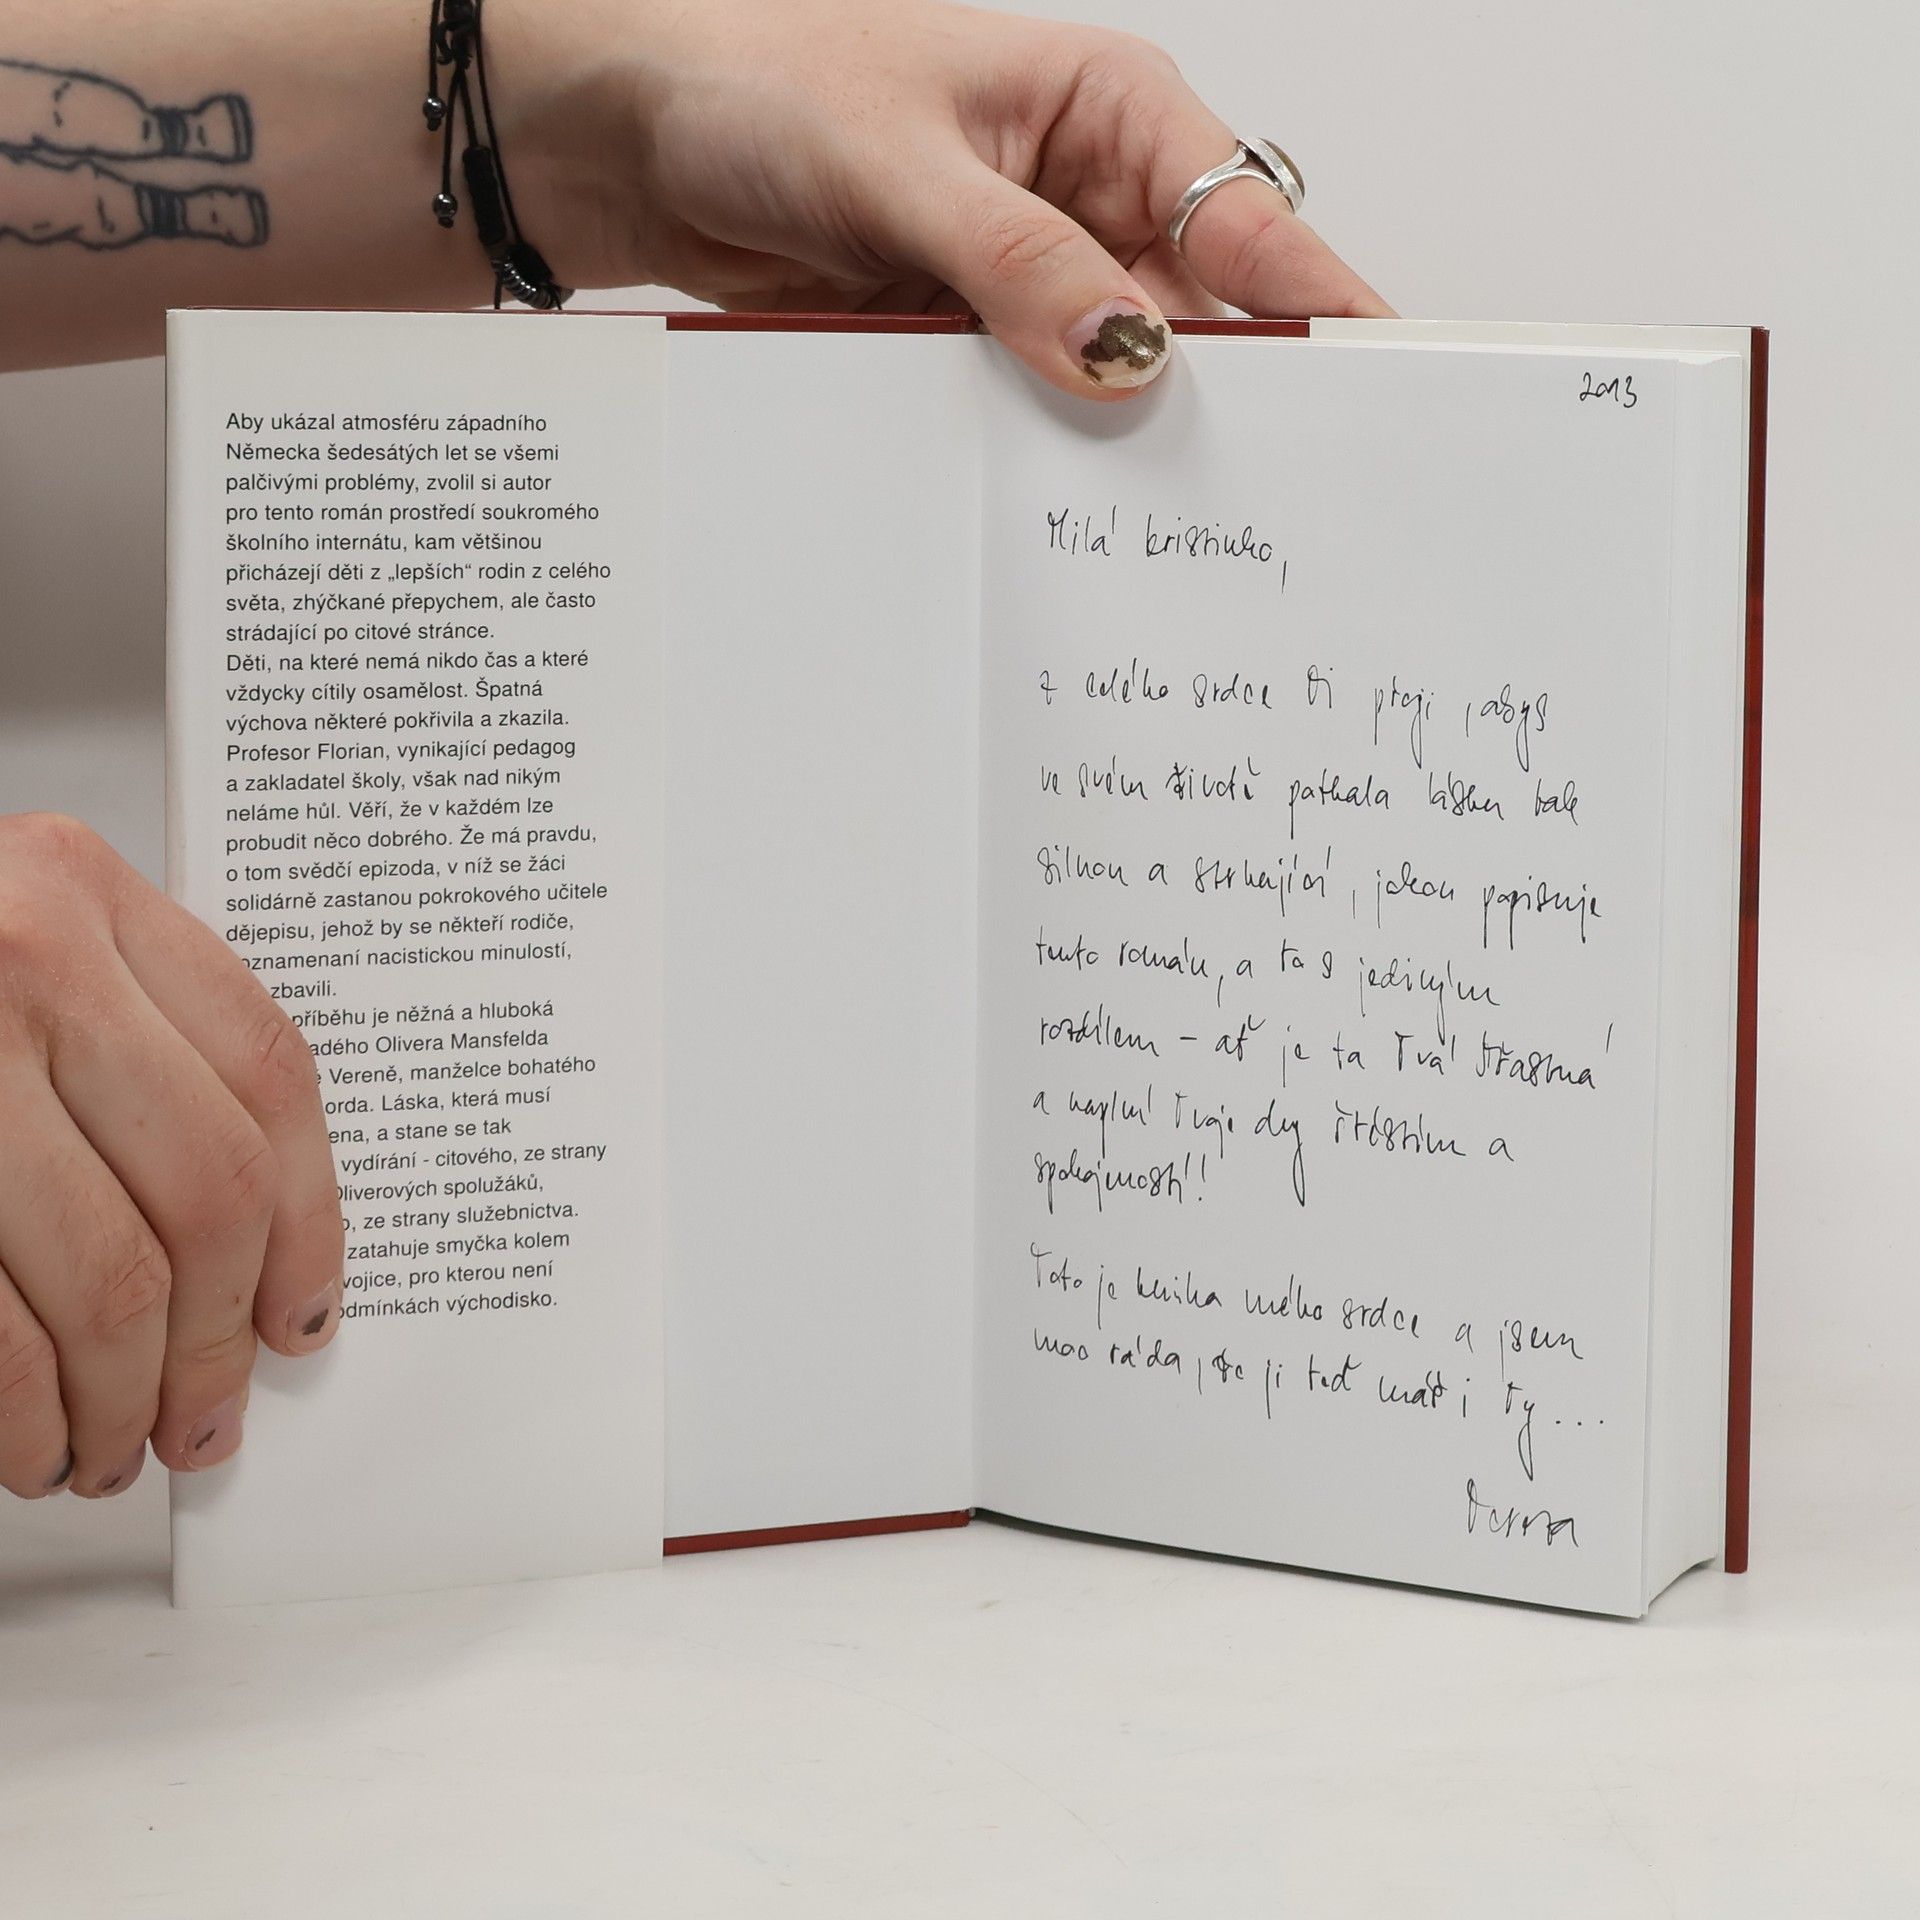 Aby ukázal atmosféru západního
Německa šedesátých let se všemi
palčivými problémy, zvolil si autor
pro tento román prostředí soukromého
školního internátu, kam většinou
přicházejí děti z „lepších“ rodin z celého
světa, zhýčkané přepychem, ale často
strádající po citové stránce.
Děti, na které nemá nikdo čas a které
vždycky cítily osamělost. Špatná
výchova některé pokřivila a zkazila.
Profesor Florian, vynikající pedagog
a zakladatel školy, však nad nikým
neláme hůl. Věří, že v každém lze
probudit něco dobrého. Že má pravdu,
o tom svědčí epizoda, v níž se žáci
solidárně zastanou pokrokového učitele
dějepisu, jehož by se někteří rodiče,
oznamenaní nacistickou minulostí,
zbavili.
příběhu je něžná a hluboká
adého Olivera Mansfelda
Vereně, manželce bohatého
orda. Láska, která musí
ena, a stane se tak
vydírání - citového, ze strany
Oliverových spolužáků,
o, ze strany služebnictva.
zatahuje smyčka kolem
vojice, pro kterou není
odmínkách východisko.
2013
Milá kristinko,
z celého srdce Ti přeji, abys
ve svém životě potkala lásku tak
silnou a strhající, jakou popisuje
tento román, a to s jediným
rozdílem – ať je ta Tvá šťastná
a naplní Tvoje dny štěstím a
spokojeností!
Toto je knížka mého srdce a jsem
moc ráda, že ji teď máš i Ty...
Tereza